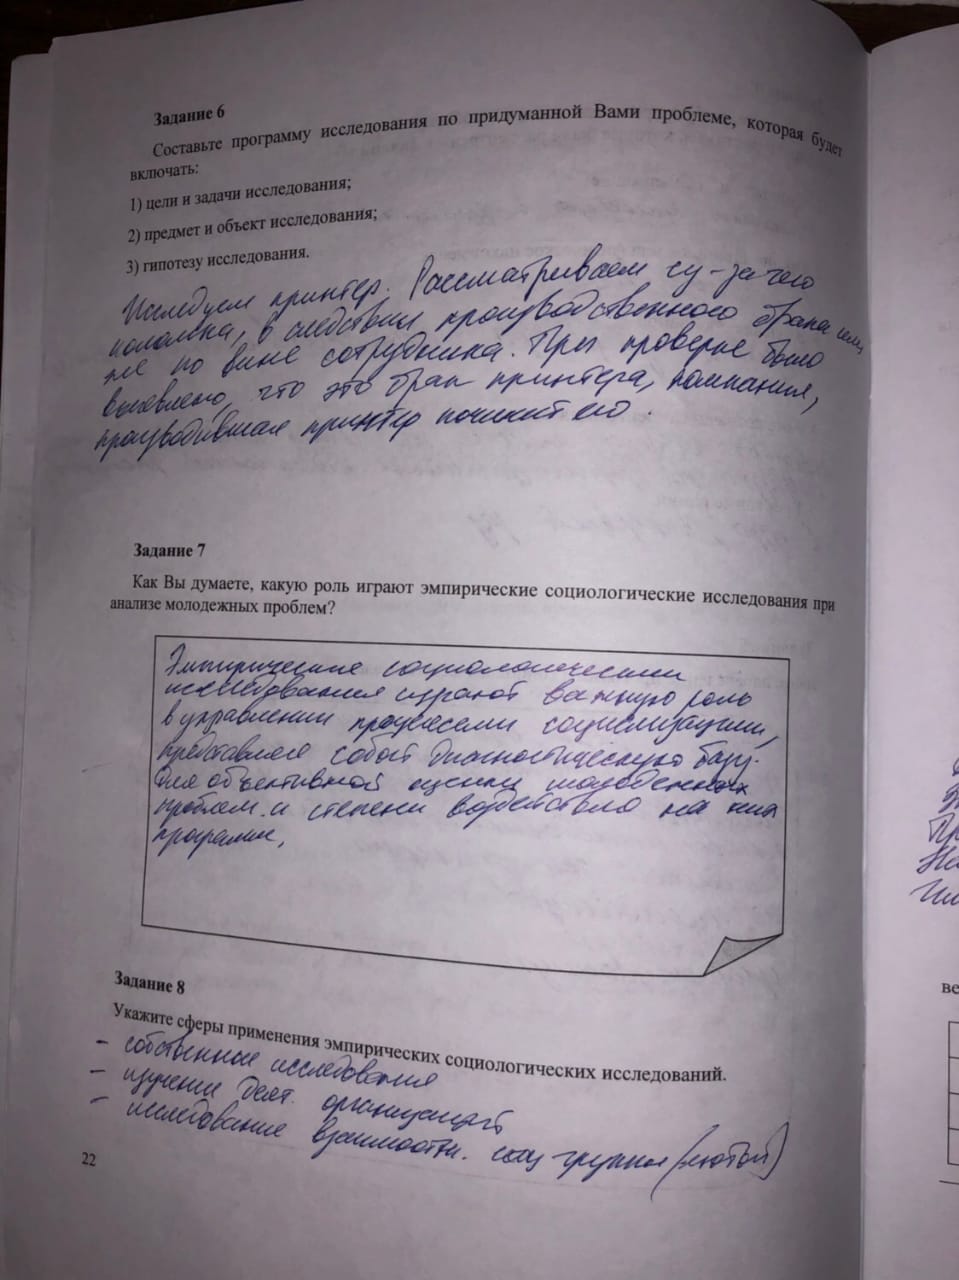 Задание 6
Составьте программу исследования по придуманной Вами проблеме, которая будет
включать:
1) цели и задачи исследования;
2) предмет и объект исследования;
3) гипотезу исследования.
Исследуем принтер. Рассматриваем из-за чего
поломка, в следствии производственного брака или
же по вине сотрудника. При проверке было
выявлено, что это брак принтера, компания,
производившая принтер починит его.
Задание 7
Как Вы думаете, какую роль играют эмпирические социологические исследования при
анализе молодежных проблем?
Эмпирические социологические
исследования играют важную роль
в управлении процессами социализации,
представляя собой диагностическую базу
для объективной оценки молодежных
проблем и степени на них
программ.
Задание 8
Укажите сферы применения эмпирических социологических исследований.
- собственное исследования
- изучение деят. организаций
- исследование взаимоотн. соц группы (любой)
22
Пр
ве